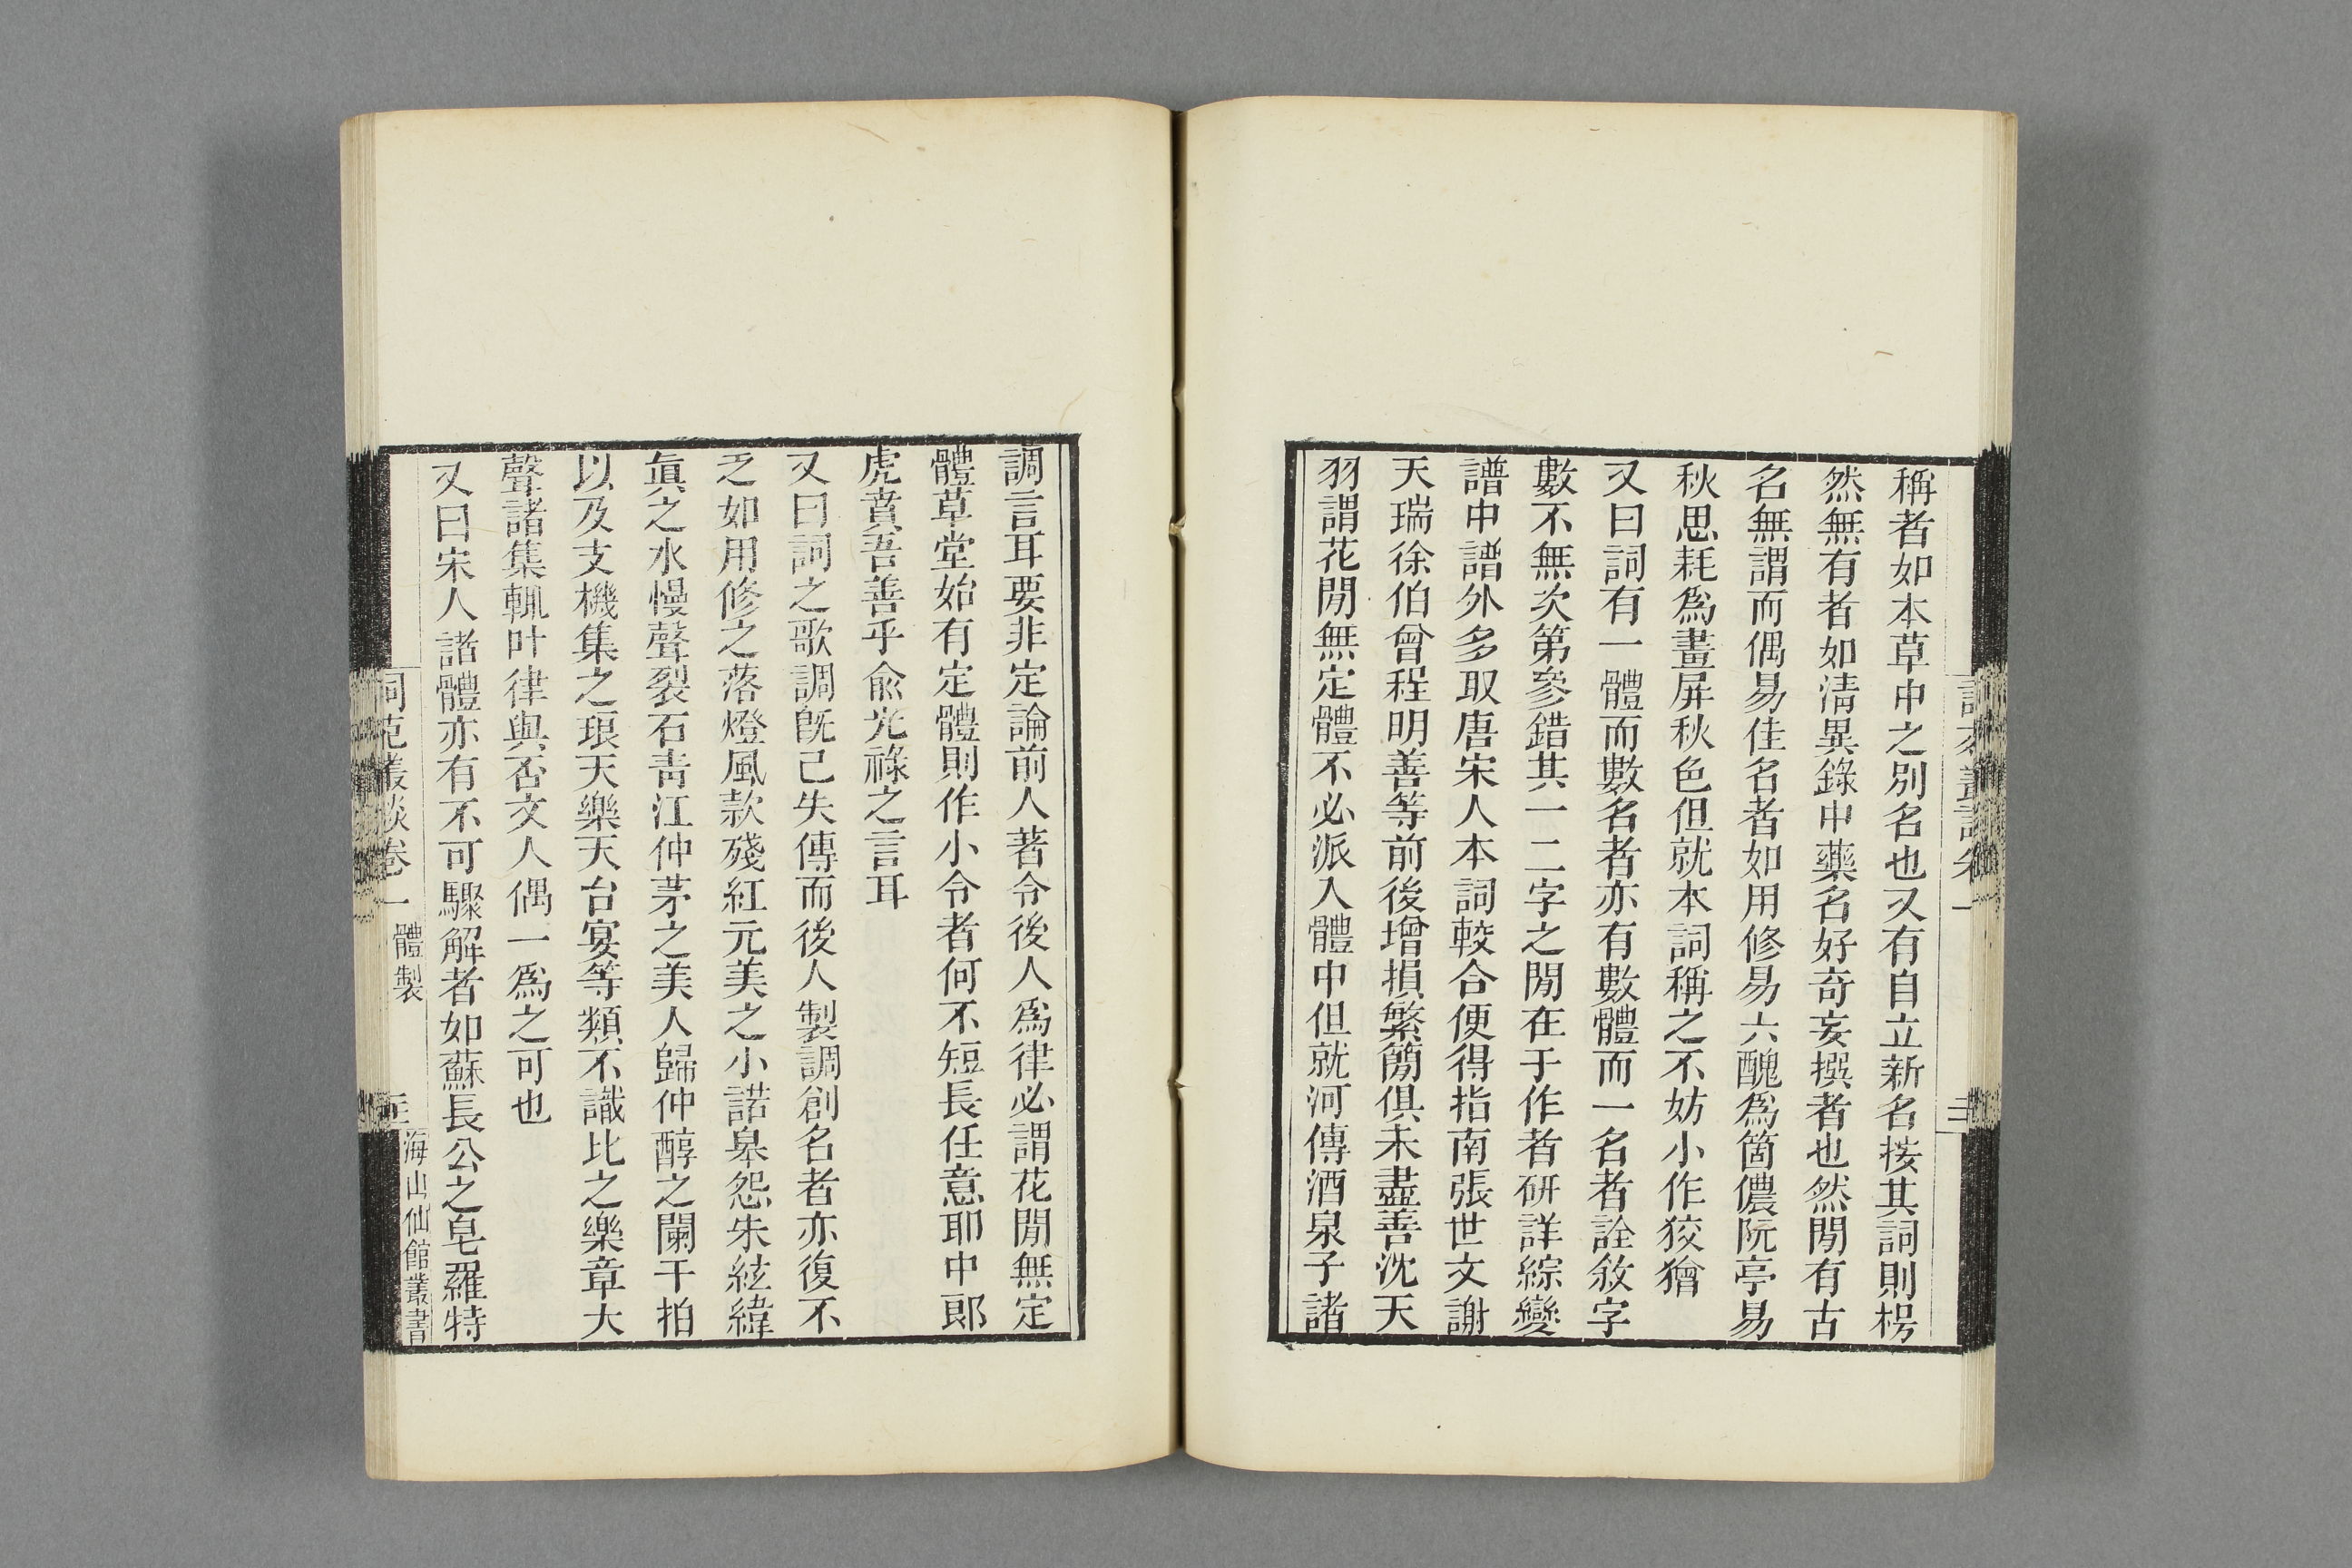 稱者如本草中之別名也又有自立新名按其詞則枵
然無有者如淸異錄中藥名好奇妄撰者也然閒有古
名無謂而偶易佳名者如用修易六醜爲箇儂阮亭易
秋思耗爲畫屏秋色但就本詞稱之不妨小作狡獪
又曰詞有一體而數名者亦有數體而一名者詮敘字
數不無次第參錯其一二字之閒在于作者硏詳綜變
譜中譜外多取唐宋人本詞較合便得指南張世文謝
天瑞徐伯曾程明善等前後增損繁簡俱未盡善沈天
羽謂花閒無定體不必派入體中但就河傳酒泉子諸
調言耳要非定論前人著令後人爲律必謂花閒無定
體草堂始有定體則作小令者何不短長任意耶中郎
虎賁吾善乎兪光祿之言耳
又曰詞之歌調旣已失傳而後人製調創名者亦復不
乏如用修之落燈風款殘紅元美之小諾皋怨朱絃緯
眞之水慢聲裂石靑江仲茅之美人歸仲醇之闌干拍
以及支機集之琅天樂天台宴等類不識比之樂章大
聲諸集輒叶律與否文人偶一爲之可也
又曰宋人諸體亦有不可驟解者如蘇長公之皂羅特
詞苑叢談卷一 體製
海山仙館叢書